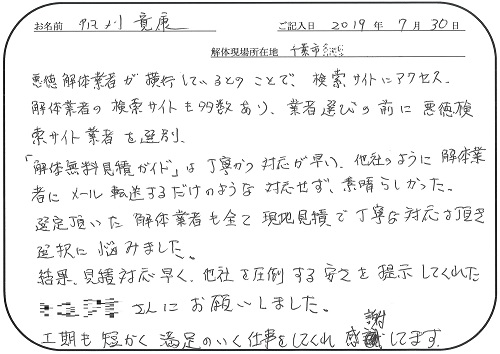 お名前 ご記入日 2019年 7月 30日
解体現場所在地 千葉市
悪徳解体業者が横行しているとのことで、検索サイトにアクセス.
解体業者の検索サイトも多数あり、業者選びの前に悪徳検
索サイト業者を選別.
「解体無料見積ガイド」は丁寧かつ対応が早い、他社のように解体業
者にメール転送するだけのような対応せず、素晴らしかった。
選定頂いた解体業者も全て現地見積で丁寧な対応を頂き
選択に悩みました。
結果、見積対応早く、他社を圧倒する安さを提示してくれた
さんにお願いしました。
工期も短かく満足のいく仕事をしてくれ感謝してます